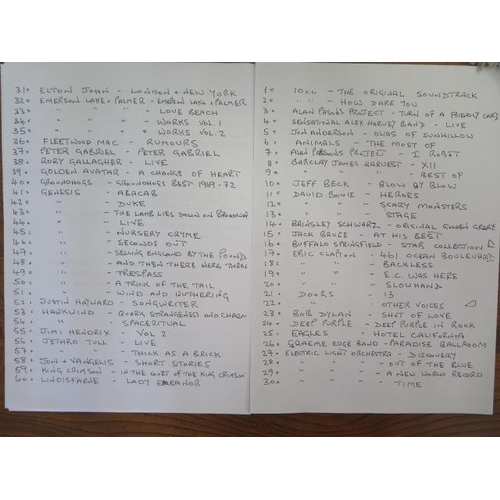 31. ELTON JOHN - LONDON & NEW YORK
32. EMERSON LAKE & PALMER - EMERSON LAKE & PALMER
33. " " " - LOVE BEACH
34. " " " WORKS VOL. 1
35. " " " WORKS VOL. 2
36. FLEETWOOD MAC - RUMOURS
37. PETER GABRIEL - PETER GABRIEL
38. RORY GALLAGHER - LIVE
39. GOLDEN AVATAR - A CHANGE OF HEART
40. GROUNDHOGS - GROUNDHOGS BEST 1969-72
41. GENESIS - ABACAB
42. " - DUKE
43. " - THE LAMB LIES DOWN ON BROADWAY
44. " - LIVE
45. " - NURSERY CRYME
46. " - SECONDS OUT
47. " - SELLING ENGLAND BY THE POUND
48. " - AND THEN THERE WERE THREE
49. " - TRESPASS
50. " - A TRICK OF THE TAIL
51. " - WIND AND WUTHERING
52. JUSTIN HAYWARD - SONGWRITER
53. HAWKWIND - QUARK STRANGENESS AND CHARM
54. " - SPACERITUAL
55. JIMI HENDRIX - VOL 2
56. JETHRO TULL - LIVE
57. " - THICK AS A BRICK
58. JON & VANGELIS - SHORT STORIES
59. KING CRIMSON - IN THE COURT OF THE KING CRIMSON
60. LINDISFARNE LADY ELEANOR
1. 10CC - THE ORIGINAL SOUNDTRACK
2. " " - HOW DARE YOU
3. ALAN PARSONS PROJECT - TURN OF A FRIENDLY CARD
4. SENSATIONAL ALEX HARVEY BAND - LIVE
5. JON ANDERSON - OLIAS OF SUNHILLOW
6. ANIMALS - THE MOST OF
7. ALAN PARSONS PROJECT - I ROBOT
8. BARCLAY JAMES HARVEST - XII
9. " " " BEST OF
10. JEFF BECK - BLOW BY BLOW
11. DAVID BOWIE - HEROES
12. " " - SCARY MONSTERS
13. " " - STAGE
14. BRINSLEY SCHWARZ - ORIGINAL GOLDEN GREATS
15. JACK BRUCE - AT HIS BEST
16. BUFFALO SPRINGFIELD - STAR COLLECTION
17. ERIC CLAPTON - 461 OCEAN BOULEVARD
18. " " - BACKLESS
19. " " - E.C. WAS HERE
20. " " - SLOWHAND
21. DOORS - 13
22. " - OTHER VOICES
23. BOB DYLAN - SHOT OF LOVE
24. DEEP PURPLE - DEEP PURPLE IN ROCK
25. EAGLES - HOTEL CALIFORNIA
26. GRAEME EDGE BAND - PARADISE BALLROOM
27. ELECTRIC LIGHT ORCHESTRA - DISCOVERY
28. " " " - OUT OF THE BLUE
29. " " " - A NEW WORLD RECORD
30. " " " TIME